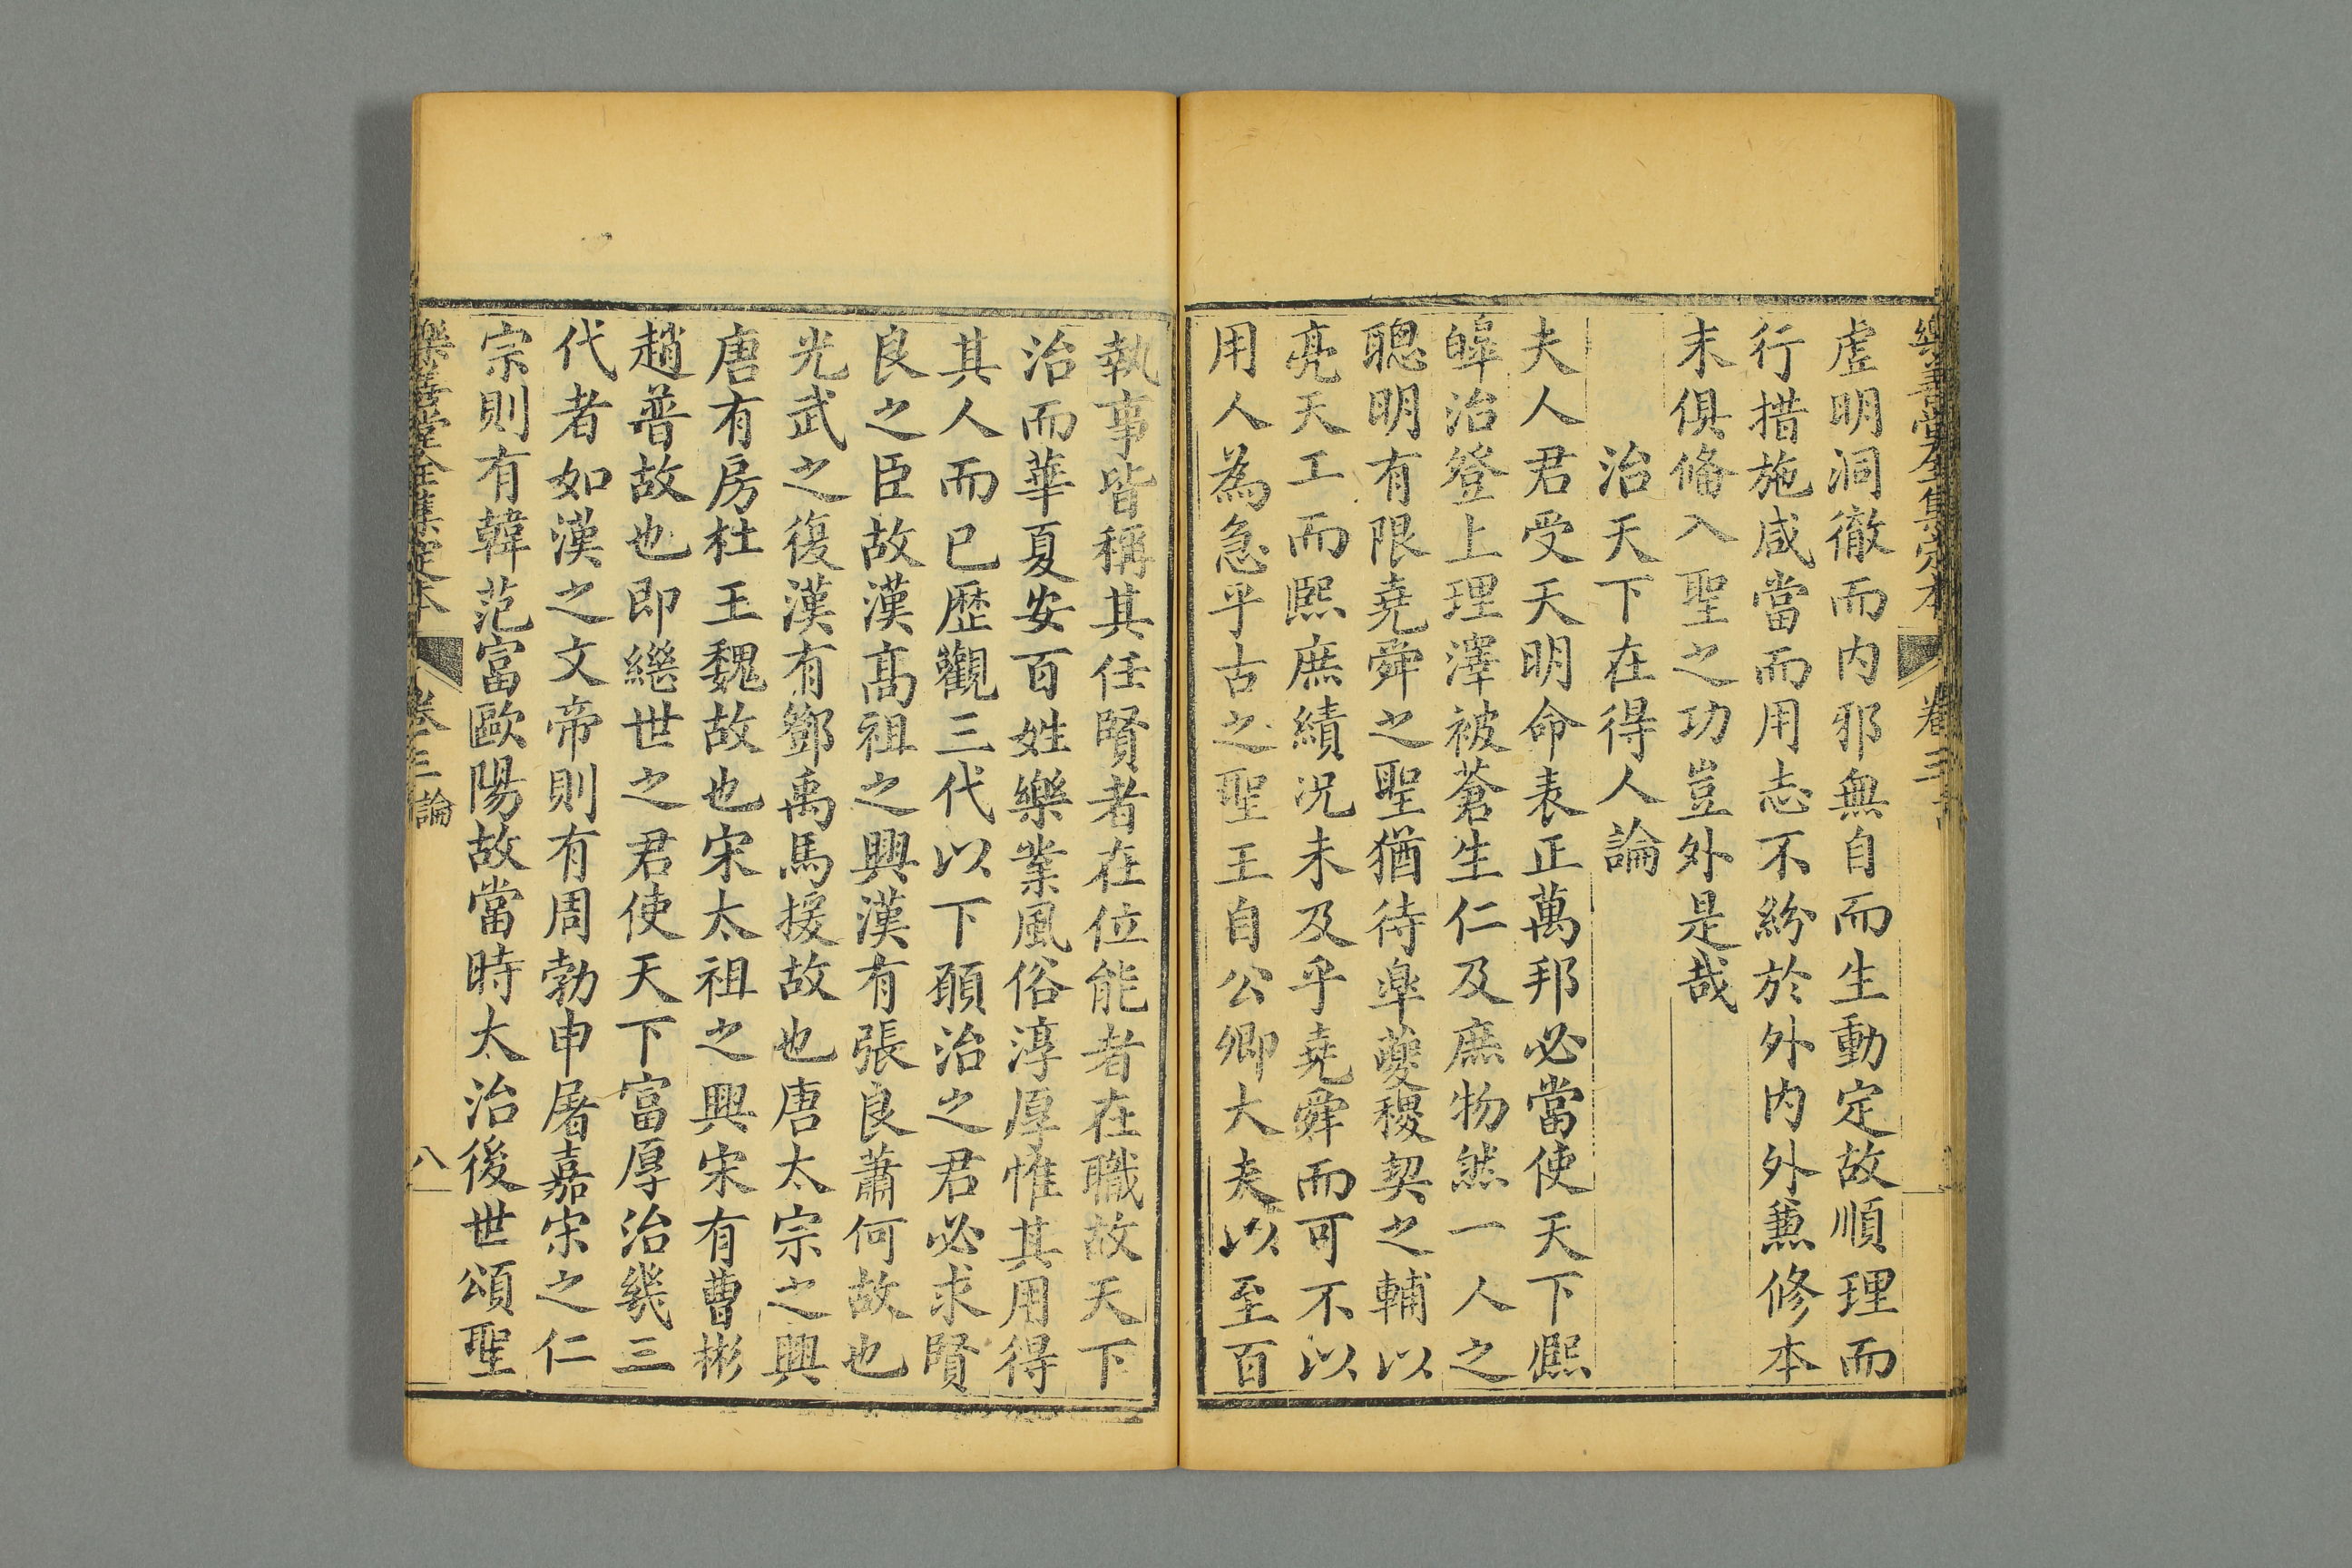 樂善堂全集定本 卷三
虛明洞徹而内邪無自而生動定故順理而
行措施咸當而用志不紛於外内外兼修本
末俱俻入聖之功豈外是哉
治天下在得人論
夫人君受天明命表正萬邦必當使天下熈
皞治登上理澤被蒼生仁及庶物然一人之
聰明有限堯舜之聖猶待臯夔稷契之輔以
亮天工而熈庶績况未及乎堯舜而可不以
用人為急乎古之聖王自公卿大夫以至百
執事皆稱其任賢者在位能者在職故天下
治而華夏安百姓樂業風俗淳厚惟其用得
其人而已歴觀三代以下願治之君必求賢
良之臣故漢髙祖之興漢有張良蕭何故也
光武之復漢有鄧禹馬援故也唐太宗之興
唐有房杜王魏故也宋太祖之興宋有曹彬
趙普故也即繼世之君使天下富厚治幾三
代者如漢之文帝則有周勃申屠嘉宋之仁
宗則有韓范富歐陽故當時太治後世頌聖
樂善堂全集定本 卷三 論 八